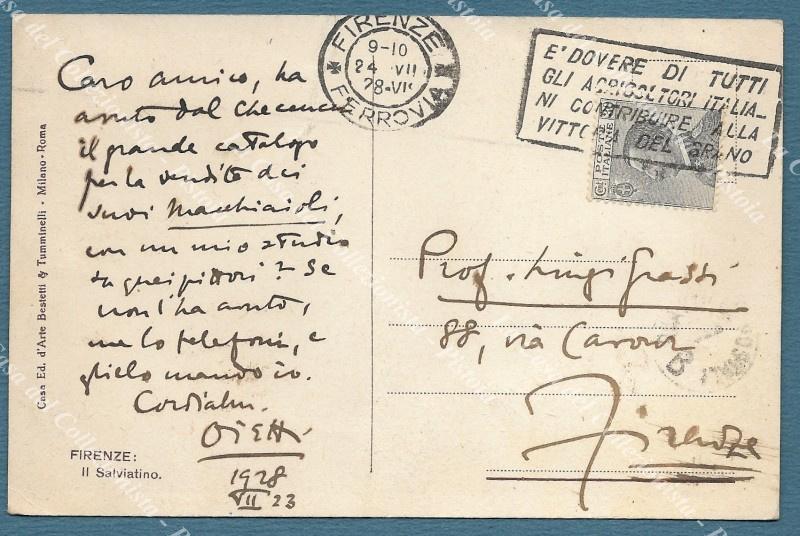 FIRENZE
FERROVIA
9-10
24 VII
28-VI
E' DOVERE DI TUTTI
GLI AGRICOLTORI ITALIA-
NI CONTRIBUIRE ALLA
VITTO DEL GRANO
POSTE ITALIANE
Caro amico, ha
avuto dal
il grande catalogo
per la vendita dei
suoi Macchiaioli,
con un mio studio
su quei pittori? Se
non l'ha avuto,
me lo telefoni, e
glielo mando io.
Cordialm.
Ojetti
1928
VII 23
Prof. Luigi Grassi
88, via Cavour
Firenze
Casa Ed. d'Arte Bestetti & Tumminelli - Milano - Roma
FIRENZE:
Il Salviatino.